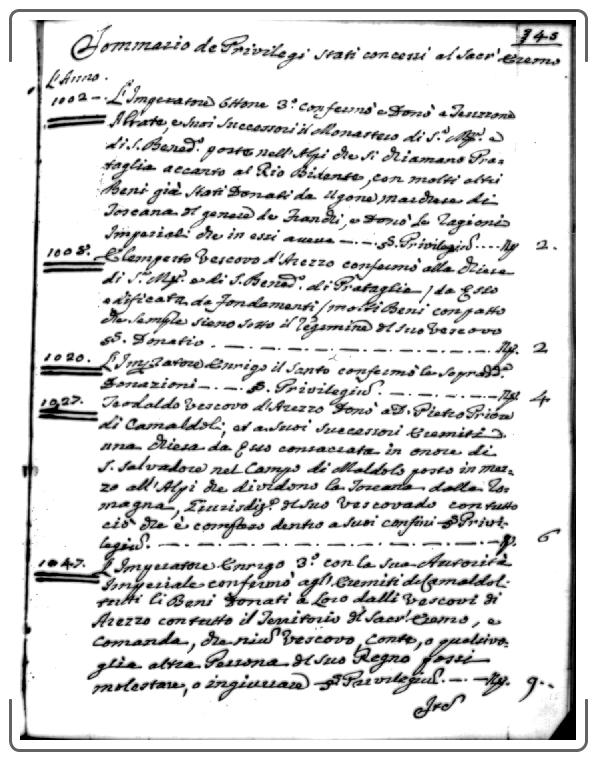 345
Sommario de Privilegi stati concessi al Sacr. Eremo
L'Anno.
1002 - L'Imperatore Ottone 3.º confermò e Donò a
Abate, e suoi successori il Monastero di S.ª M.ª e
di S. Bened.º posto nell'Alpi che si chiamano Pra-
taglia accanto al Rio Bidente, con molti altri
Beni già stati Donati da Ugone marchese di
Toscana del genere de Franchi, e Donò le ragioni
Imperiali che in essi aveva - . - p. Privilegiũ .... Nº 2.
1008. Elemperto Vescovo d'Arezzo confermò alla chiesa
di S.ª M.ª e di S. Bened.º di Prataglia / da Esso
edificata da fondamenti / molti Beni con patto
che sempre sieno sotto il regimine del suo Vescovo
p. Donatio . - . - . - . - . - . - . - . - Nº. 2
1020. L'Imperatore Enrigo il Santo confermò le sopradd.e
Donazioni - . - . p. Privilegiũ . - . - . - . - Nº. 4
1027. Teodaldo Vescovo d'Arezzo Donò a D. Pietro Priore
di Camaldoli, et a suoi successori Eremiti
una chiesa da Esso consacrata in onore di
S. Salvadore nel Campo di Maldolo posto in mez-
zo all'Alpi che dividono la Toscana dalla Ro-
magna, Giurisdiz.e del suo Vescovado con tutto
ciò che è compreso dentro a suoi confini p. Privi-
legiũ. - . - . - . - . - . - . - . - . - 6
1047. L'Imperatore Enrigo 3.º con la sua Autorità
Imperiale confermò agl'Eremiti di Camaldol:
tutti li Beni Donati a Loro dalli Vescovi di
Arezzo con tutto il Territorio del Sacr. Eremo, e
comanda, che niũ Vescovo, Conte, o qualsivo-
glia altra Persona del suo Regno possi
molestare, o ingiuriare p. Privilegiũ . - . - Nº. 9..